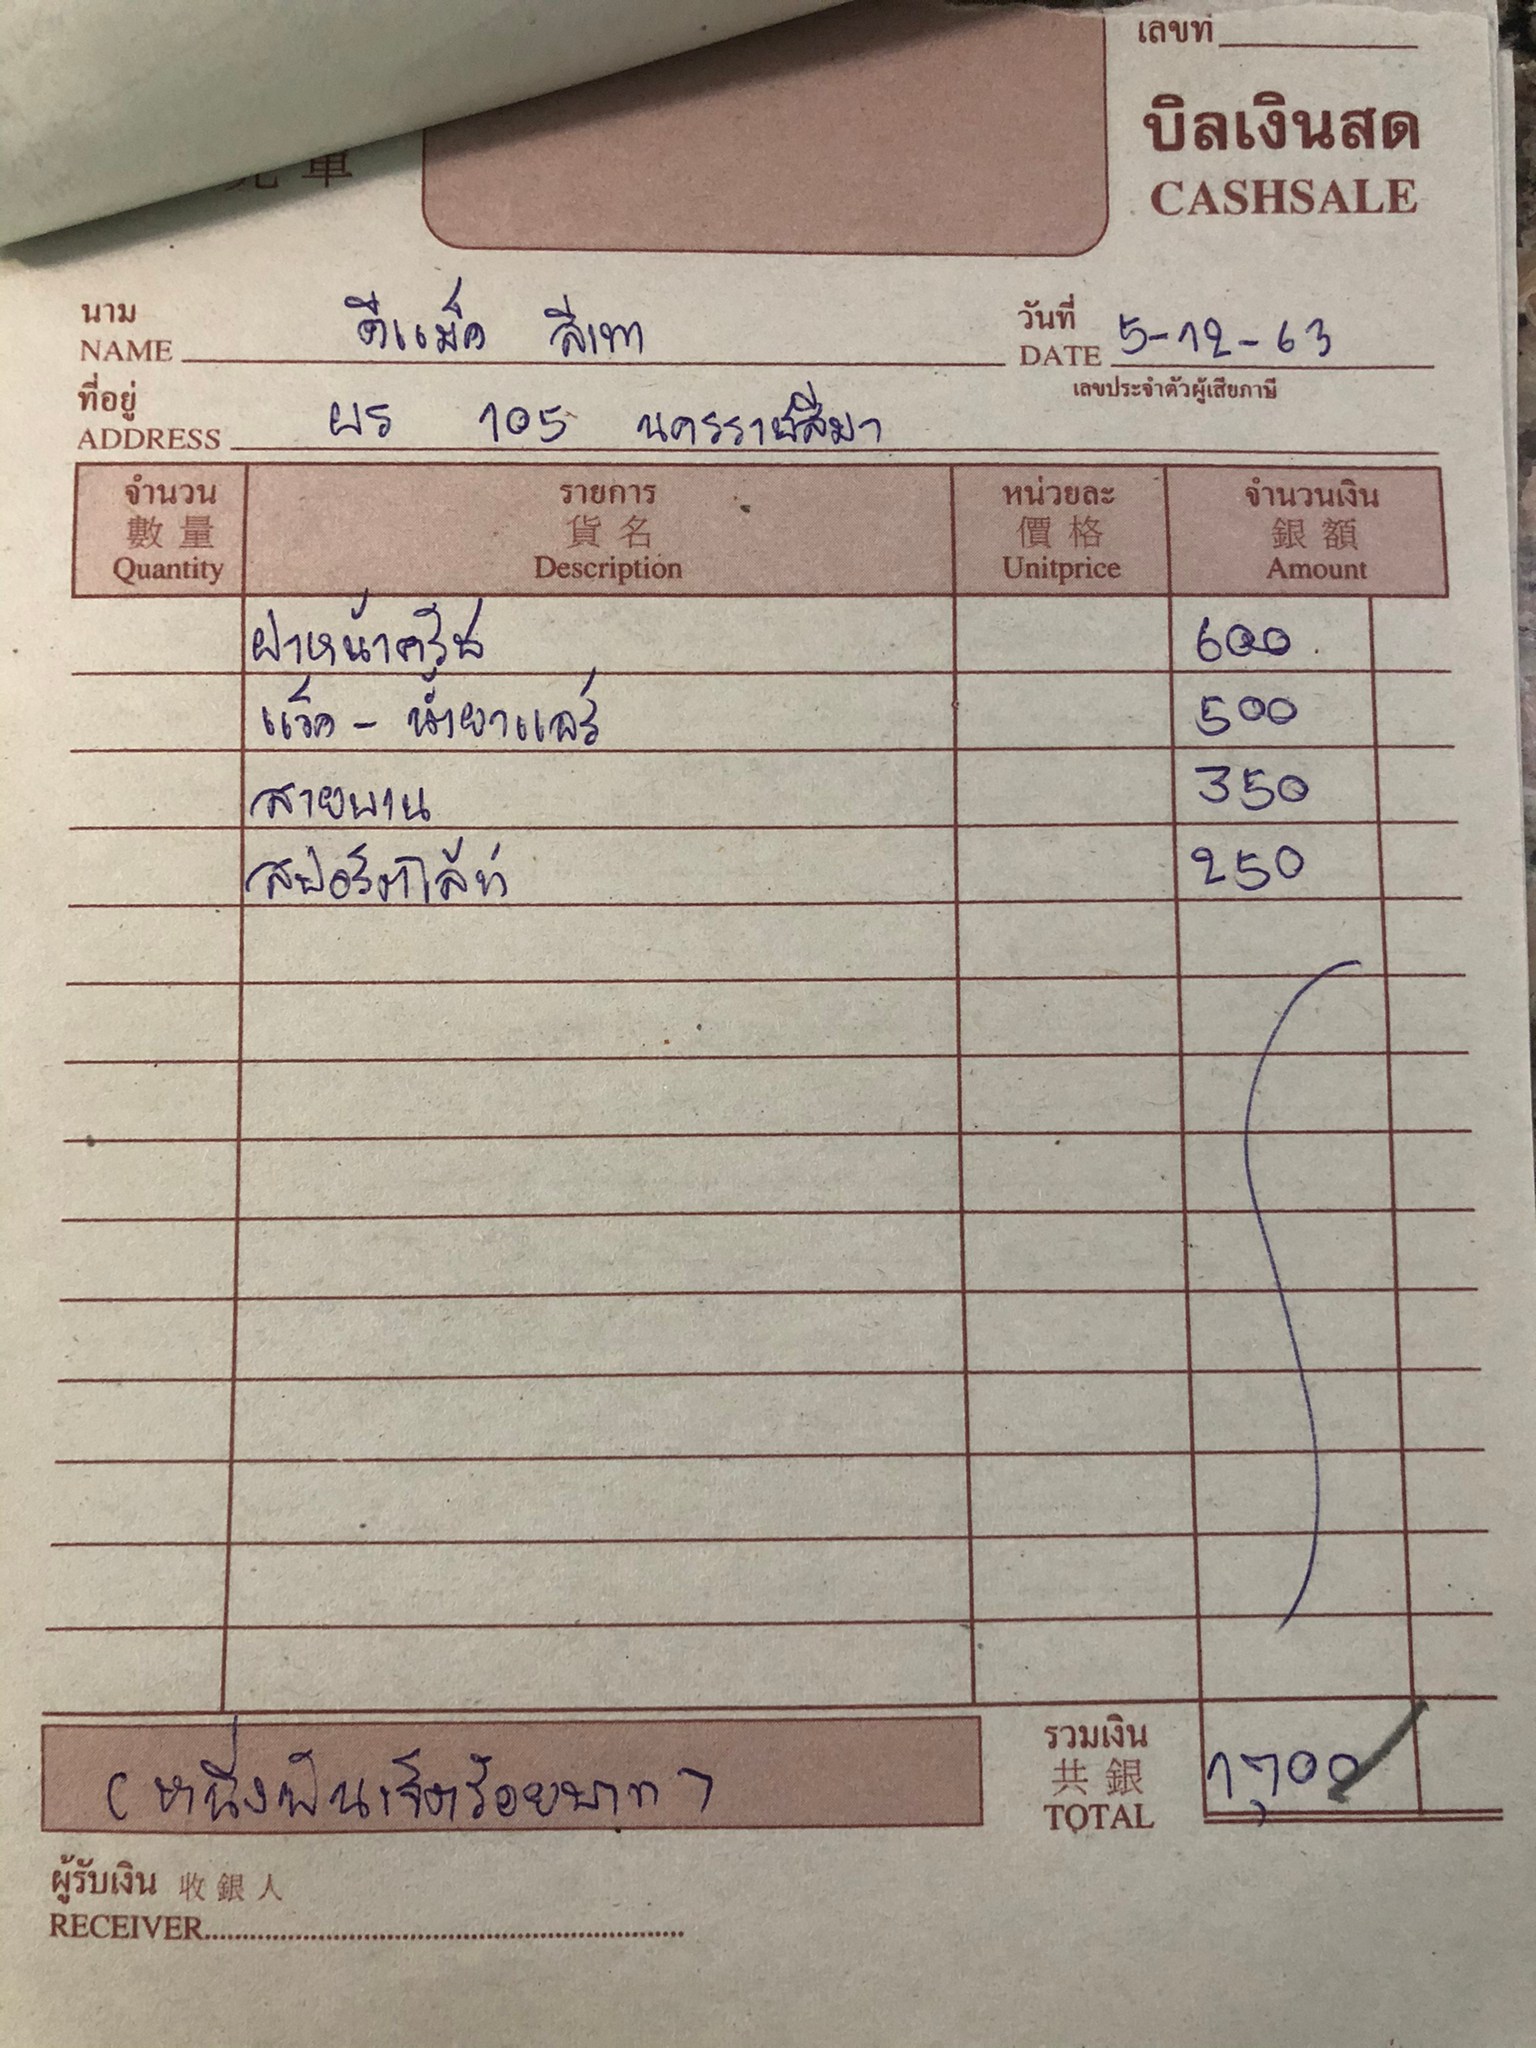 เลขที่
บิลเงินสด
CASHSALE
單
นาม
NAME ดีแม็ค สีเทา
วันที่
DATE 5-12-63
เลขประจำตัวผู้เสียภาษี
ที่อยู่
ADDRESS ผร 105 นครราชสีมา
จำนวน รายการ หน่วยละ จำนวนเงิน
數量 貨名 價格 銀額
Quantity Description Unitprice Amount
ฝาหน้าครัช 600
แว็ค - น้ำยาแอร์ 500
สายพาน 350
สปอร์ตไล้ท์ 250
(หนึ่งพันเจ็ดร้อยบาท)
รวมเงิน
共銀
TOTAL 1,700
ผู้รับเงิน 收銀人
RECEIVER